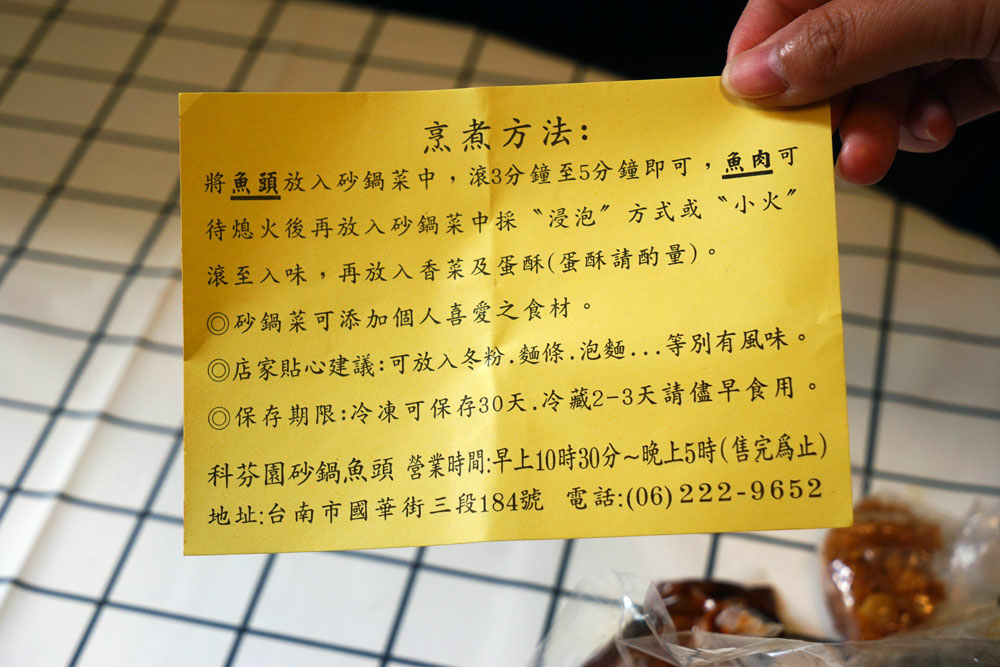 烹煮方法:
將魚頭放入砂鍋菜中，滾3分鐘至5分鐘即可，魚肉可
待熄火後再放入砂鍋菜中採〝浸泡〞方式或〝小火〞
滾至入味，再放入香菜及蛋酥(蛋酥請酌量)。
◎砂鍋菜可添加個人喜愛之食材。
◎店家貼心建議:可放入冬粉.麵條.泡麵...等別有風味。
◎保存期限:冷凍可保存30天.冷藏2-3天請儘早食用。
科芬園砂鍋魚頭 營業時間:早上10時30分~晚上5時(售完爲止)
地址:台南市國華街三段184號 電話:(06)222-9652